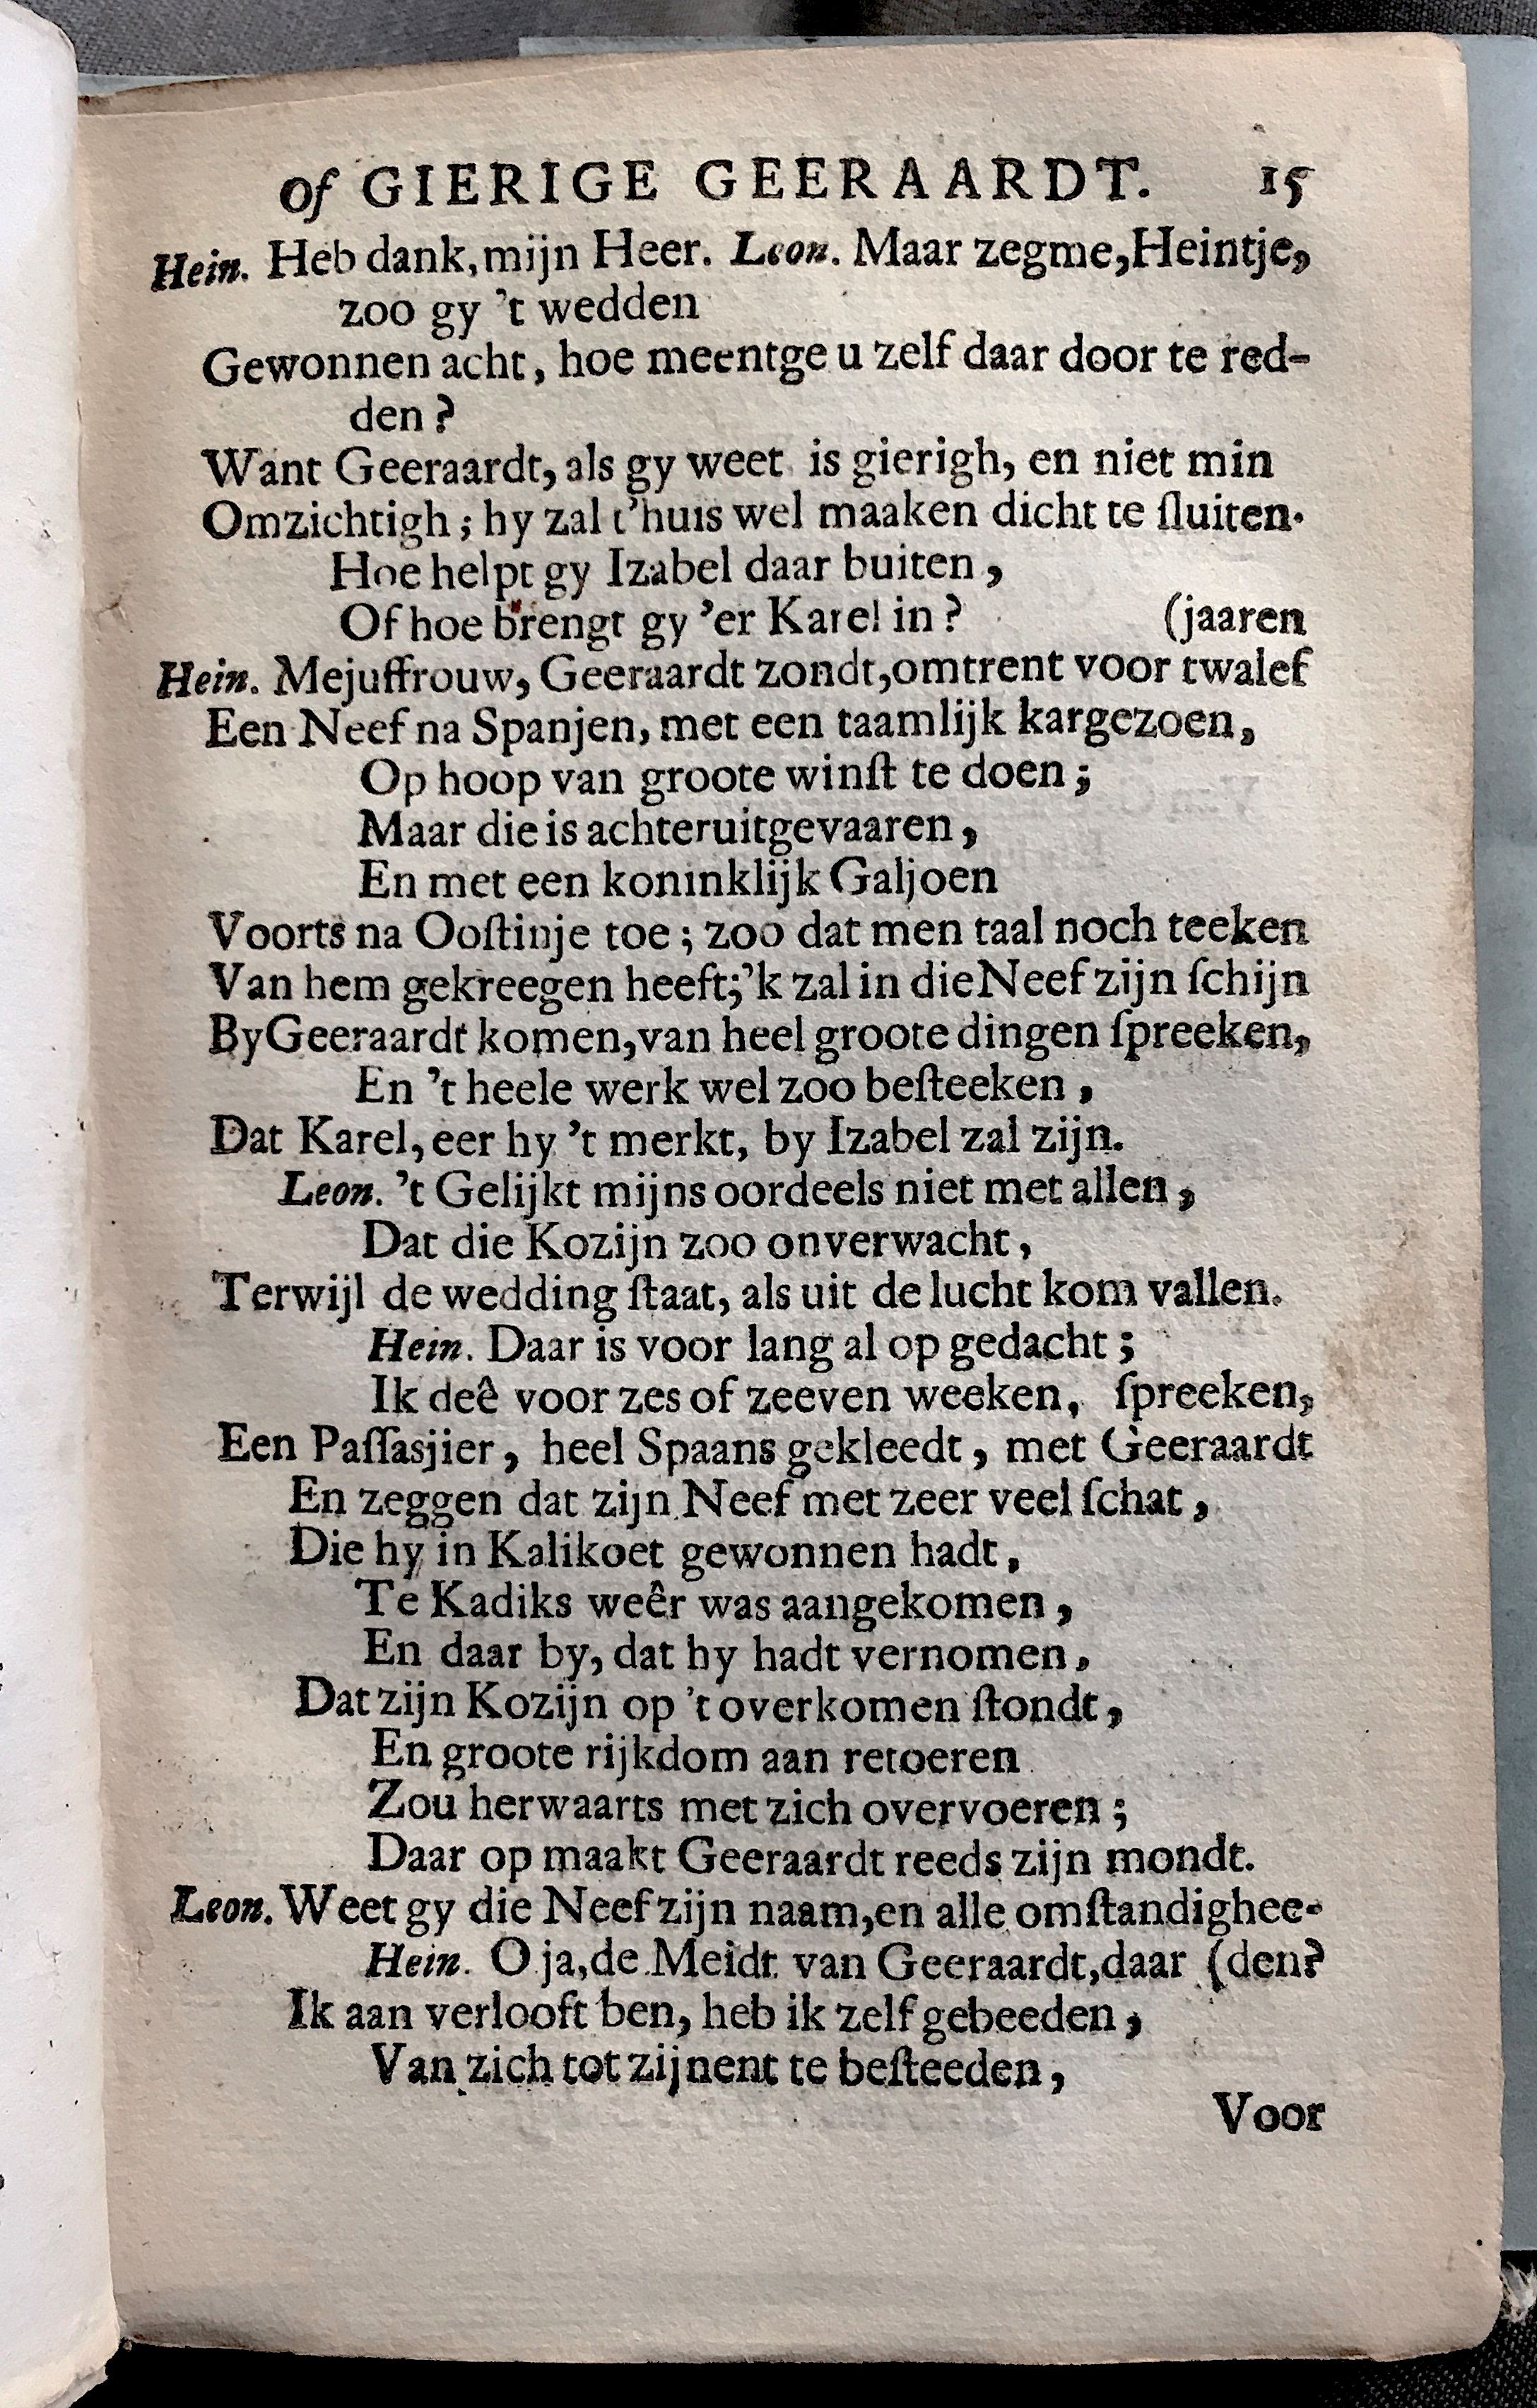 of GIERIGE GEERAARDT. 15
Hein. Heb dank, mijn Heer. Leon. Maar zegme, Heintje,
zoo gy 't wedden
Gewonnen acht, hoe meentge u zelf daar door te red-
den?
Want Geeraardt, als gy weet is gierigh, en niet min
Omzichtigh; hy zal t'huis wel maaken dicht te ſluiten.
Hoe helpt gy Izabel daar buiten,
Of hoe brengt gy 'er Karel in? (jaaren
Hein. Mejuffrouw, Geeraardt zondt, omtrent voor twalef
Een Neef na Spanjen, met een taamlijk kargezoen,
Op hoop van groote winſt te doen;
Maar die is achteruitgevaaren,
En met een koninklijk Galjoen
Voorts na Ooſtinje toe; zoo dat men taal noch teeken
Van hem gekreegen heeft; 'k zal in die Neef zijn ſchijn
By Geeraardt komen, van heel groote dingen ſpreeken,
En 't heele werk wel zoo beſteeken,
Dat Karel, eer hy 't merkt, by Izabel zal zijn.
Leon. 't Gelijkt mijns oordeels niet met allen,
Dat die Kozijn zoo onverwacht,
Terwijl de wedding ſtaat, als uit de lucht kom vallen.
Hein. Daar is voor lang al op gedacht;
Ik deê voor zes of zeeven weeken, ſpreeken,
Een Paſſasjier, heel Spaans gekleedt, met Geeraardt
En zeggen dat zijn Neef met zeer veel ſchat,
Die hy in Kalikoet gewonnen hadt,
Te Kadiks weêr was aangekomen,
En daar by, dat hy hadt vernomen,
Dat zijn Kozijn op 't overkomen ſtondt,
En groote rijkdom aan retoeren
Zou herwaarts met zich overvoeren;
Daar op maakt Geeraardt reeds zijn mondt.
Leon. Weet gy die Neef zijn naam, en alle omſtandighee-
Hein. O ja, de Meidt van Geeraardt, daar (den?
Ik aan verlooft ben, heb ik zelf gebeeden,
Van zich tot zijnent te beſteeden,
Voor